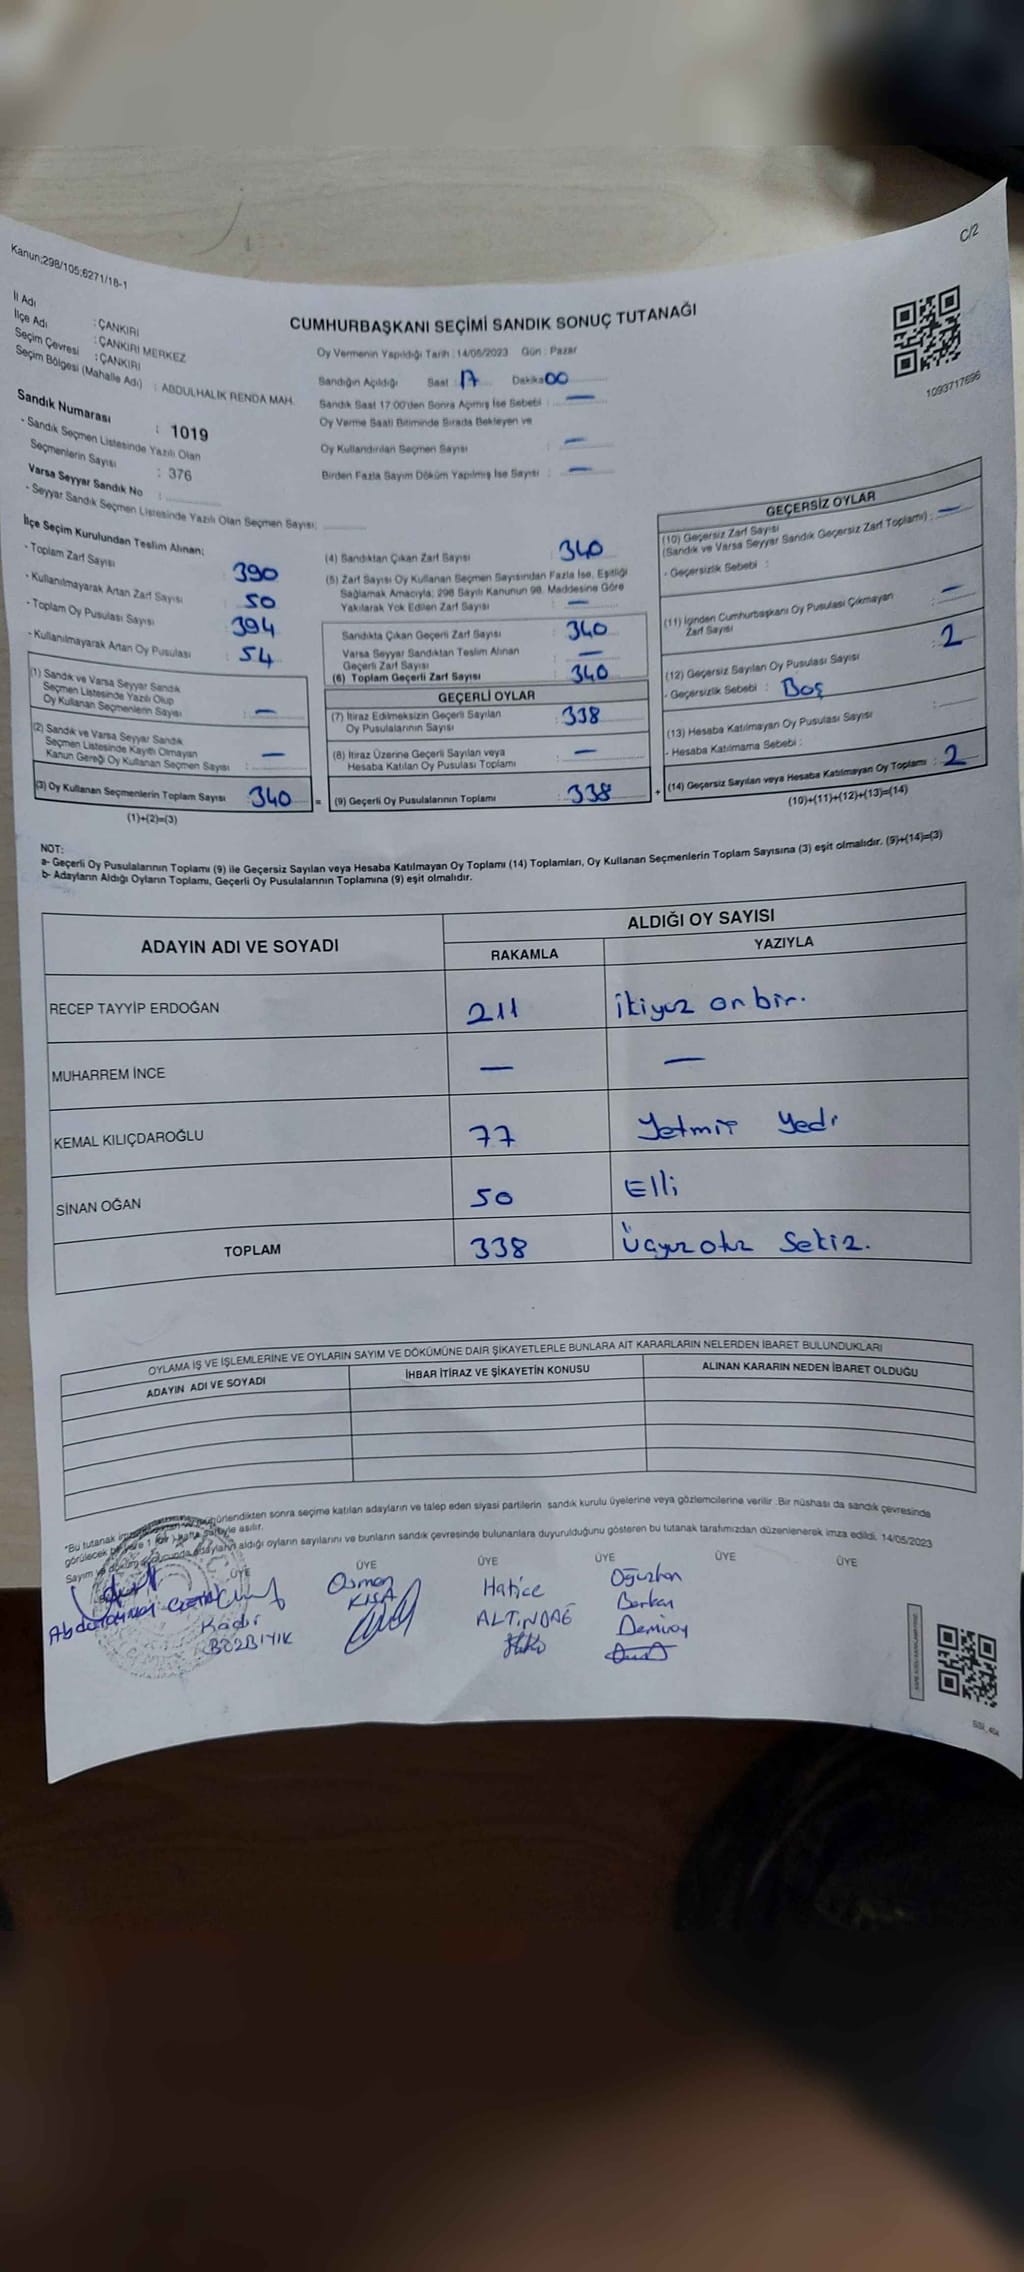 Kanun:298/105;6271/18-1
C/2
İl Adı : ÇANKIRI
İlçe Adı : ÇANKIRI MERKEZ
Seçim Çevresi : ÇANKIRI
Seçim Bölgesi (Mahalle Adı) : ABDULHALIK RENDA MAH.
Sandık Numarası : 1019
- Sandık Seçmen Listesinde Yazılı Olan
Seçmenlerin Sayısı : 376
Varsa Seyyar Sandık No :
- Seyyar Sandık Seçmen Listesinde Yazılı Olan Seçmen Sayısı:
CUMHURBAŞKANI SEÇİMİ SANDIK SONUÇ TUTANAĞI
Oy Vermenin Yapıldığı Tarih : 14/05/2023 Gün : Pazar
Sandığın Açıldığı Saat : 17 Dakika 00
Sandık Saat 17:00'den Sonra Açımış İse Sebebi : —
Oy Verme Saati Bitiminde Sırada Bekleyen ve
Oy Kullandırılan Seçmen Sayısı : —
Birden Fazla Sayım Döküm Yapılmış İse Sayısı : —
1093717696
İlçe Seçim Kurulundan Teslim Alınan;
- Toplam Zarf Sayısı : 390
- Kullanılmayarak Artan Zarf Sayısı : 50
- Toplam Oy Pusulası Sayısı : 394
- Kullanılmayarak Artan Oy Pusulası : 54
(1) Sandık ve Varsa Seyyar Sandık
Seçmen Listesinde Yazılı Olup
Oy Kullanan Seçmenlerin Sayısı : —
(2) Sandık ve Varsa Seyyar Sandık
Seçmen Listesinde Kayıtlı Olmayan
Kanun Gereği Oy Kullanan Seçmen Sayısı : —
(3) Oy Kullanan Seçmenlerin Toplam Sayısı : 340 =
(1)+(2)=(3)
(4) Sandıktan Çıkan Zarf Sayısı : 340
(5) Zarf Sayısı Oy Kullanan Seçmen Sayısından Fazla İse, Eşitliği
Sağlamak Amacıyla; 298 Sayılı Kanunun 98. Maddesine Göre
Yakılarak Yok Edilen Zarf Sayısı : —
Sandıkta Çıkan Geçerli Zarf Sayısı : 340
Varsa Seyyar Sandıktan Teslim Alınan
Geçerli Zarf Sayısı : —
(6) Toplam Geçerli Zarf Sayısı : 340
GEÇERLİ OYLAR
(7) İtiraz Edilmeksizin Geçerli Sayılan
Oy Pusulalarının Sayısı : 338
(8) İtiraz Üzerine Geçerli Sayılan veya
Hesaba Katılan Oy Pusulası Toplamı : —
(9) Geçerli Oy Pusulalarının Toplamı : 338 +
GEÇERSİZ OYLAR
(10) Geçersiz Zarf Sayısı
(Sandık ve Varsa Seyyar Sandık Geçersiz Zarf Toplamı) : —
- Geçersizlik Sebebi :
(11) İçinden Cumhurbaşkanı Oy Pusulası Çıkmayan
Zarf Sayısı : —
(12) Geçersiz Sayılan Oy Pusulası Sayısı : 2
- Geçersizlik Sebebi : Boş
(13) Hesaba Katılmayan Oy Pusulası Sayısı :
- Hesaba Katılmama Sebebi :
(14) Geçersiz Sayılan veya Hesaba Katılmayan Oy Toplamı : 2
(10)+(11)+(12)+(13)=(14)
NOT:
a- Geçerli Oy Pusulalarının Toplamı (9) ile Geçersiz Sayılan veya Hesaba Katılmayan Oy Toplamı (14) Toplamları, Oy Kullanan Seçmenlerin Toplam Sayısına (3) eşit olmalıdır. (9)+(14)=(3)
b- Adayların Aldığı Oyların Toplamı, Geçerli Oy Pusulalarının Toplamına (9) eşit olmalıdır.
ADAYIN ADI VE SOYADI
ALDIĞI OY SAYISI
RAKAMLA YAZIYLA
RECEP TAYYİP ERDOĞAN 211 ikiyüz on bir.
MUHARREM İNCE — —
KEMAL KILIÇDAROĞLU 77 Yetmiş Yedi
SİNAN OĞAN 50 Elli
TOPLAM 338 Üçyüz otuz Sekiz.
OYLAMA İŞ VE İŞLEMLERİNE VE OYLARIN SAYIM VE DÖKÜMÜNE DAİR ŞİKAYETLERLE BUNLARA AİT KARARLARIN NELERDEN İBARET BULUNDUKLARI
ADAYIN ADI VE SOYADI İHBAR İTİRAZ VE ŞİKAYETİN KONUSU ALINAN KARARIN NEDEN İBARET OLDUĞU
"Bu tutanak sonra seçime katılan adayların ve talep eden siyasi partilerin sandık kurulu üyelerine veya gözlemcilerine verilir .Bir nüshası da sandık çevresinde
görülecek asılır.
Sayım adayların aldığı oyların sayılarını ve bunların sandık çevresinde bulunanlara duyurulduğunu gösteren bu tutanak tarafımızdan düzenlenerek imza edildi. 14/05/2023
ÜYE ÜYE ÜYE ÜYE ÜYE ÜYE
Kadir
BOZBIYIK
Osman
KISA
Hatice
ALTINDAĞ
Oğuzhan
Berkan
Demiray